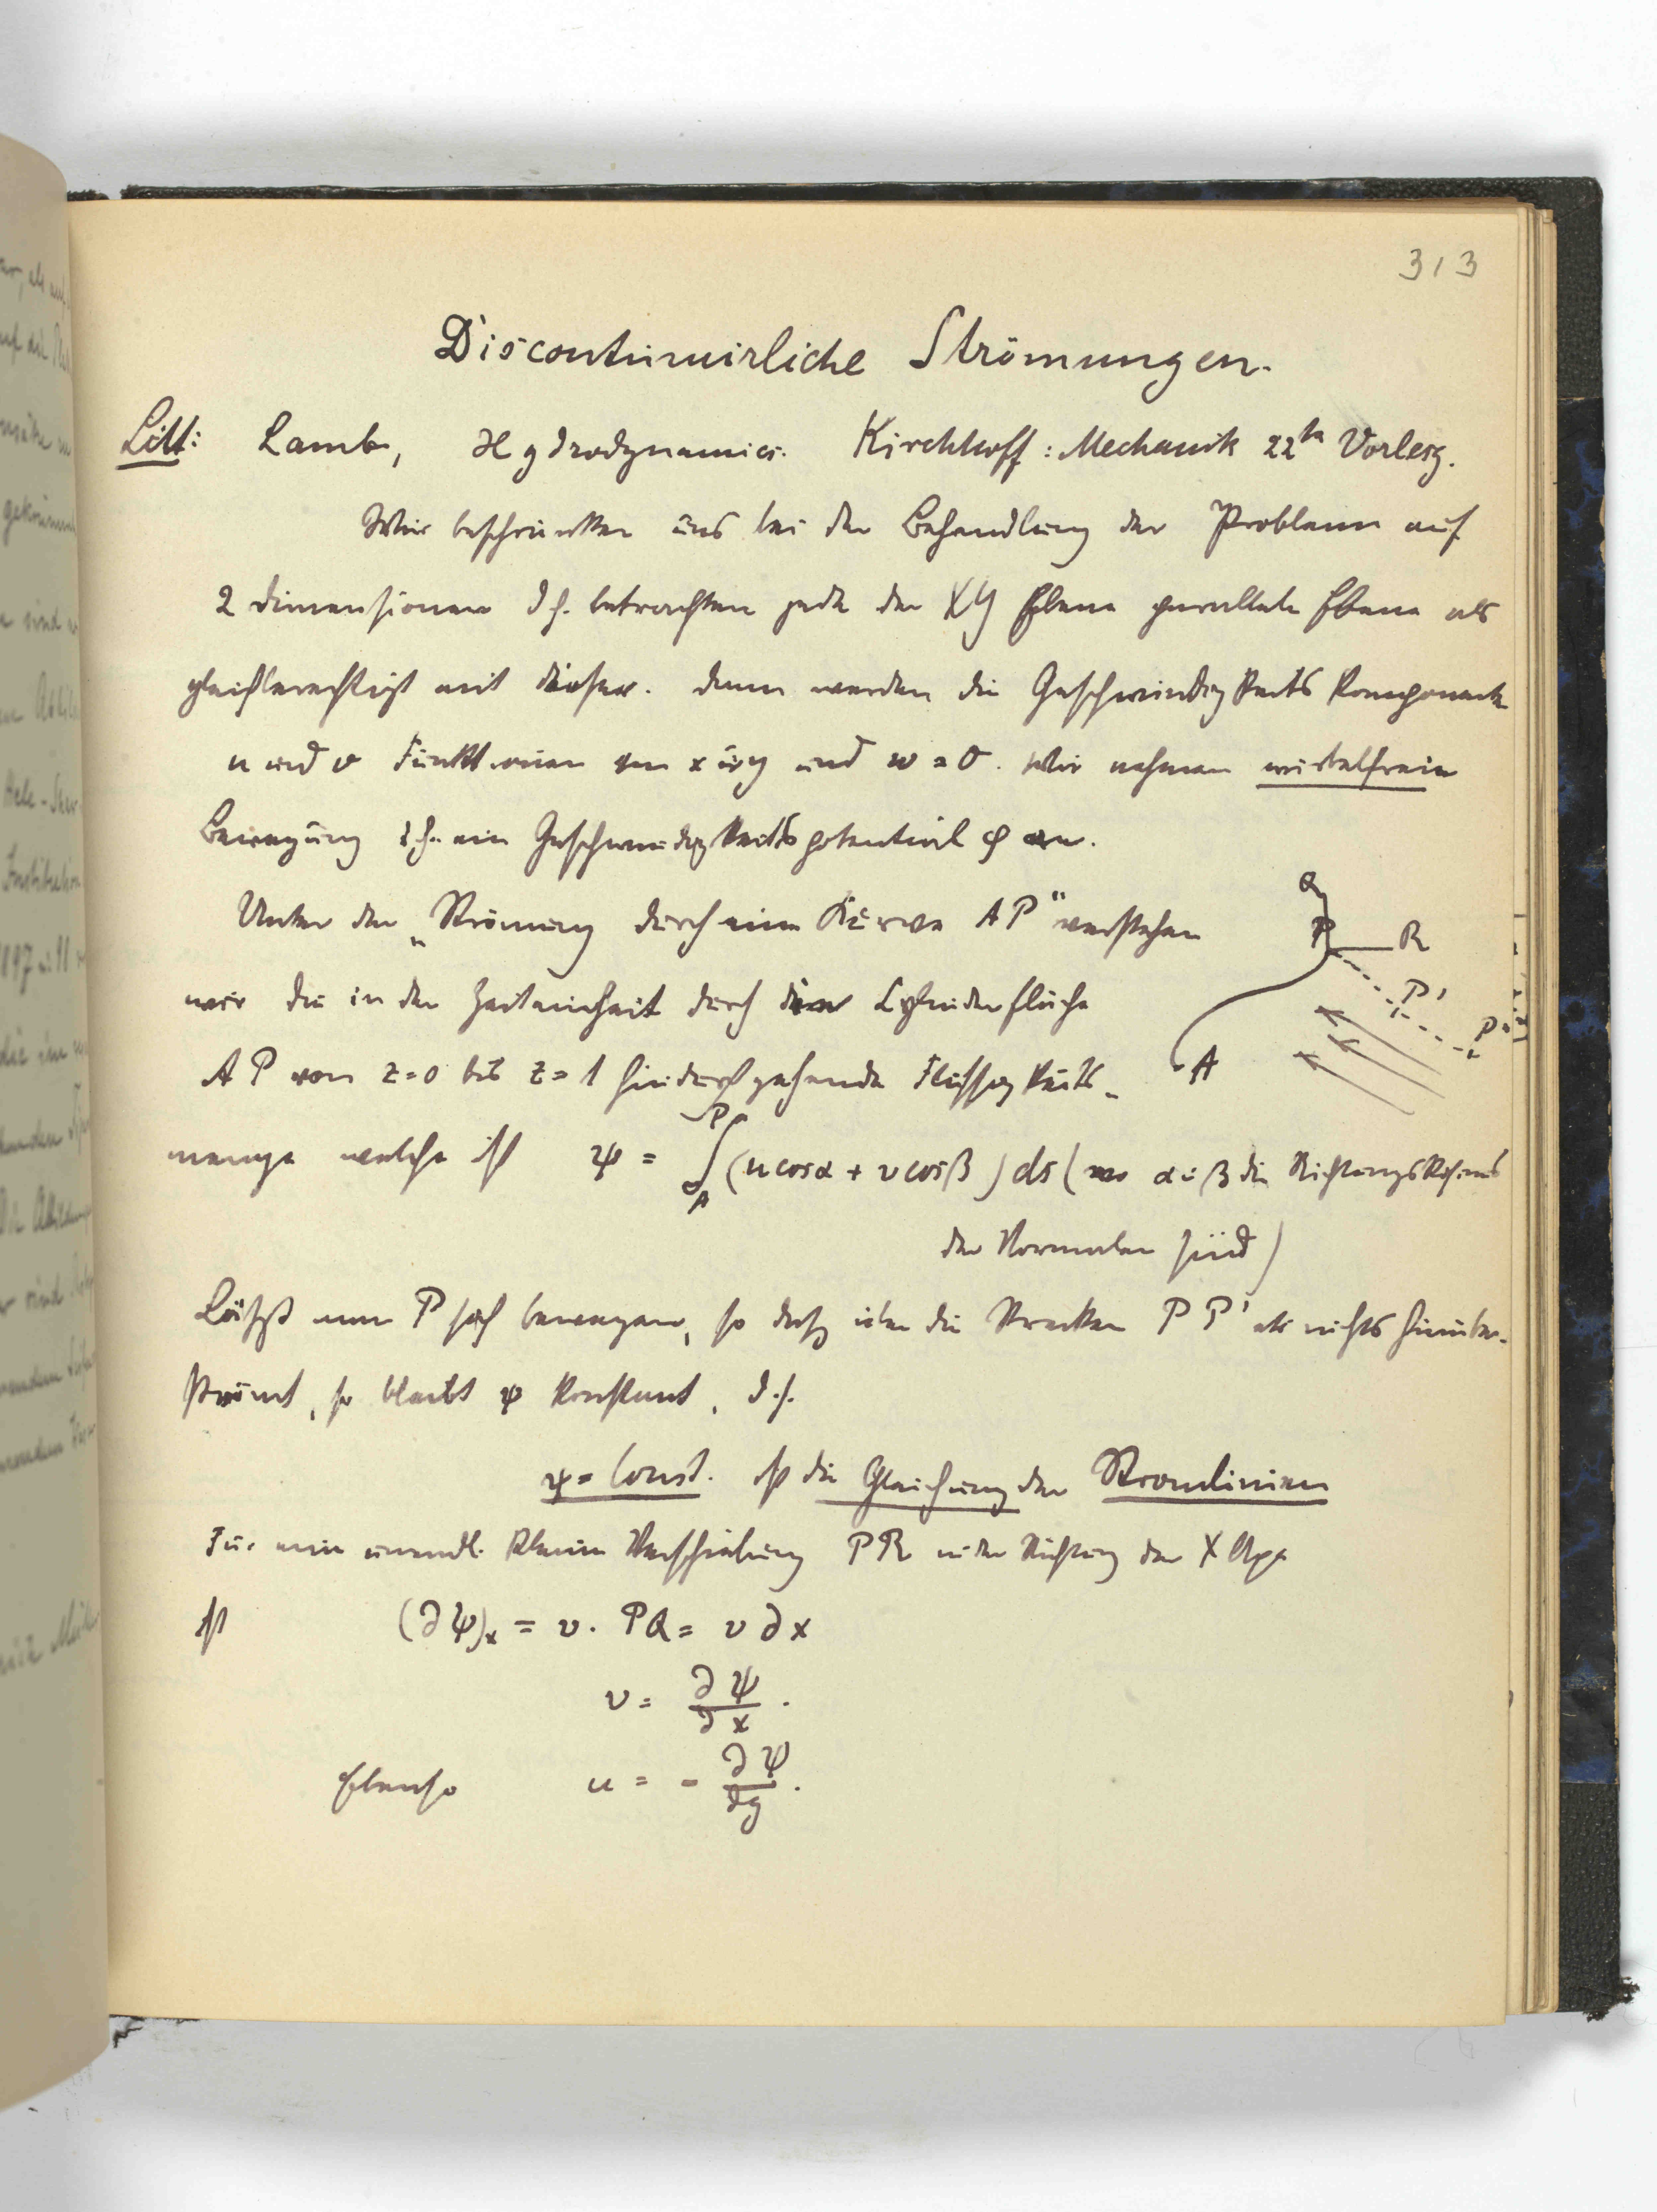 313
Discontinuirliche Strömungen.
Litt: Lamb, Hydrodynamics. Kirchhoff: Mechanik 22te Vorlesg.
Wir beschränken uns bei der Behandlung der Probleme auf
2 Dimensionen d.h. betrachten jede der XY Ebene parallele Ebene als
gleichberechtigt mit dieser. Dann werden die Geschwindigkeits Komponente
u und v Funktionen von x u. y und w = 0. Wir nehmen wirbelfreie
Bewegung d.h. ein Geschwindigkeitspotential φ an.
Unter der „Strömung durch eine Kurve AP" verstehen
wir die in der Zeiteinheit durch die Cylinderfläche
AP von z=0 bis z=1 hindurchgehende Flüssigkeits-
menge welche ist ψ = ∫_A^P (u cos α + v cos β) ds (wo α u. β die Richtungskosinus
der Normalen sind)
Läßt man P sich bewegen, so daß über die Strecken PP' etc nichts hinüber-
strömt, so bleibt ψ konstant, d.h.
ψ = Const. ist die Gleichung der Stromlinien
Für eine unendl. kleine Verschiebung PR in der Richtung der X Axe
ist (∂ψ)ₓ = v. PQ = v ∂x
v = ∂ψ/∂x.
Ebenso u = - ∂ψ/∂y.
Q
P
R
P'
P"
A